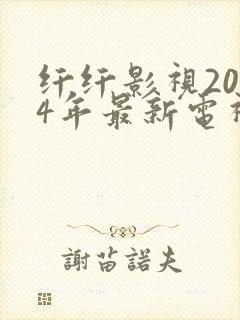 纤纤影視20
4年最新電視
謝苗諾夫